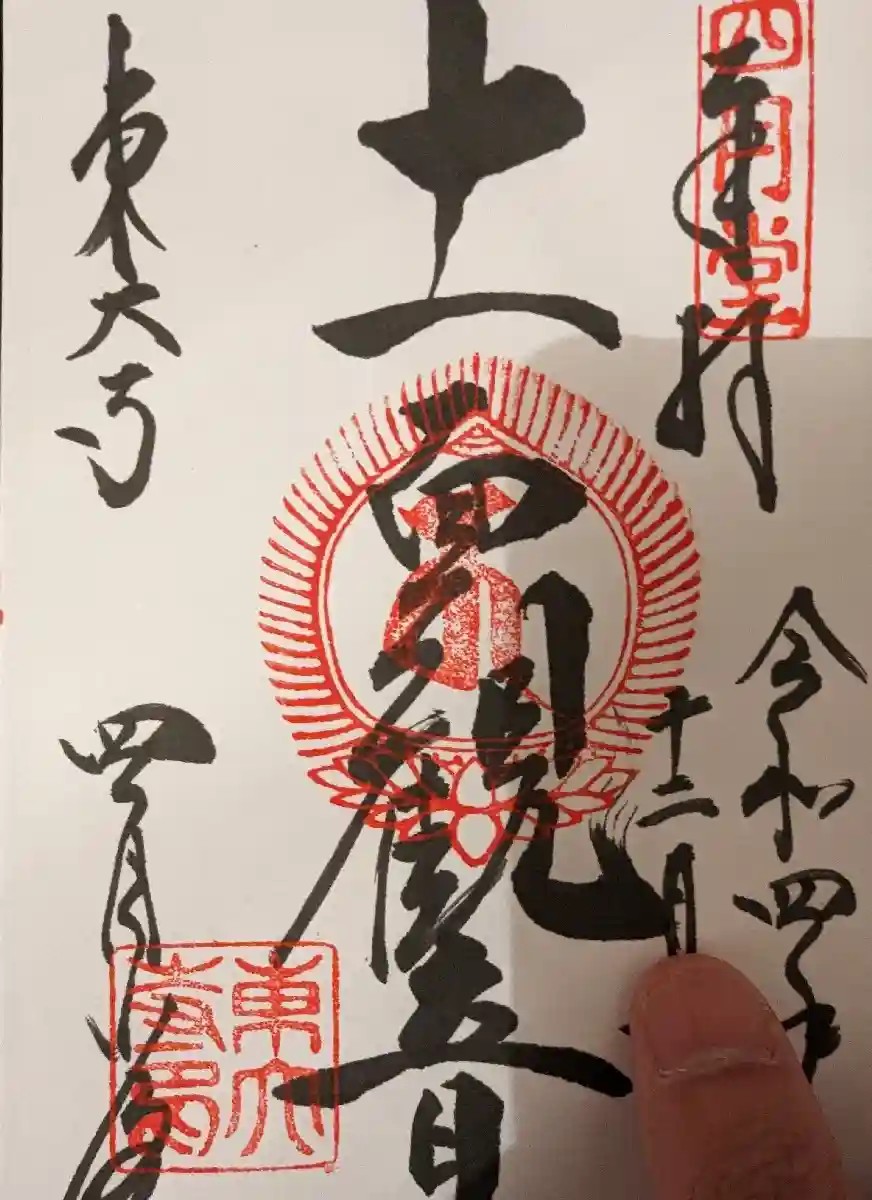 四月堂
奉拝
令和四年
十二月
十一面観音
東大寺
四月堂
東大